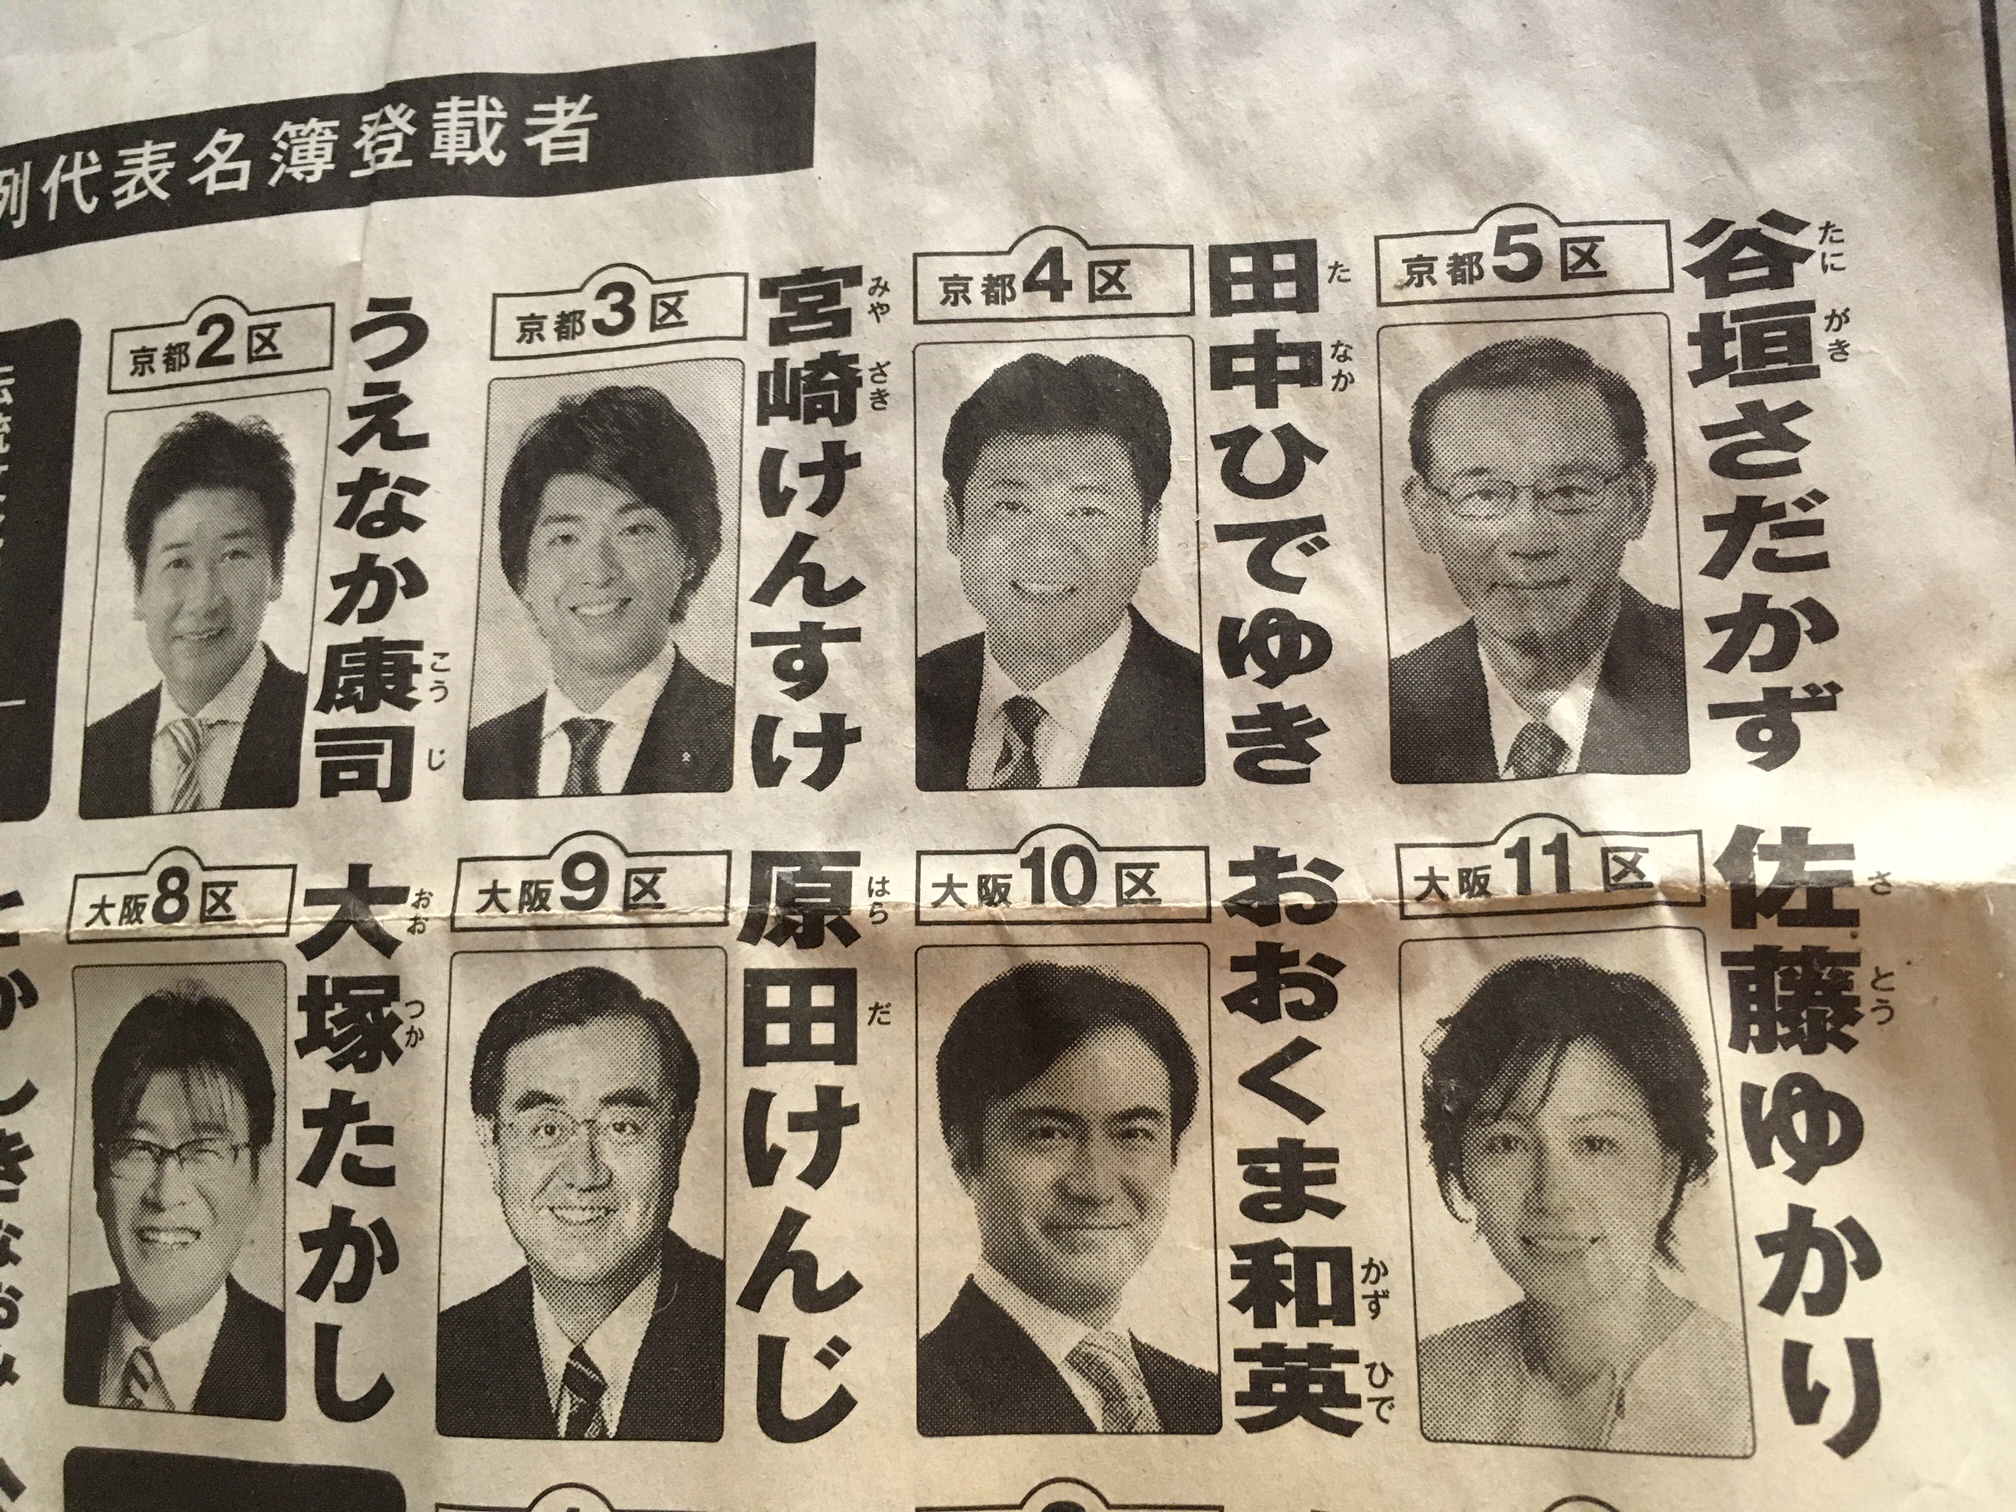 例代表名簿登載者
京都5区
谷垣さだかず
たにがき
京都4区
田中ひでゆき
たなか
京都3区
宮崎けんすけ
みやざき
京都2区
うえなか康司
こうじ
大阪11区
佐藤ゆかり
さとう
大阪10区
おおくま和英
かずひで
大阪9区
原田けんじ
はらだ
大阪8区
大塚たかし
おおつか